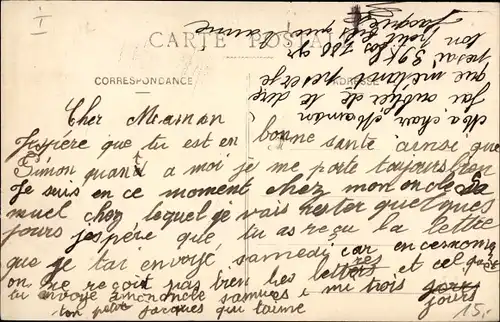 I
CARTE POSTALE
CORRESPONDANCE
ADRESSE
Cher Maman
J'espére que tu est en bonne santé ainsi que
Simon quant a moi je me porte toujours bien
Je suis en ce moment chez mon oncle Sa
muel chez lequel je vais rester quelques
jours j'espére que tu as reçu la lettre
que je tai envoyé samedi car en ce moment
on ne reçoit pas bien les lettres et cel que
tu envoye a mon oncle samuel mi trois jours
ton petit Jacques qui t'aime
15.-
Ma cher Maman
J'ai oublier de te dire
que mettant peser je
pesai 39 K 150 gr
ton petit fils que t'aime
Jacques